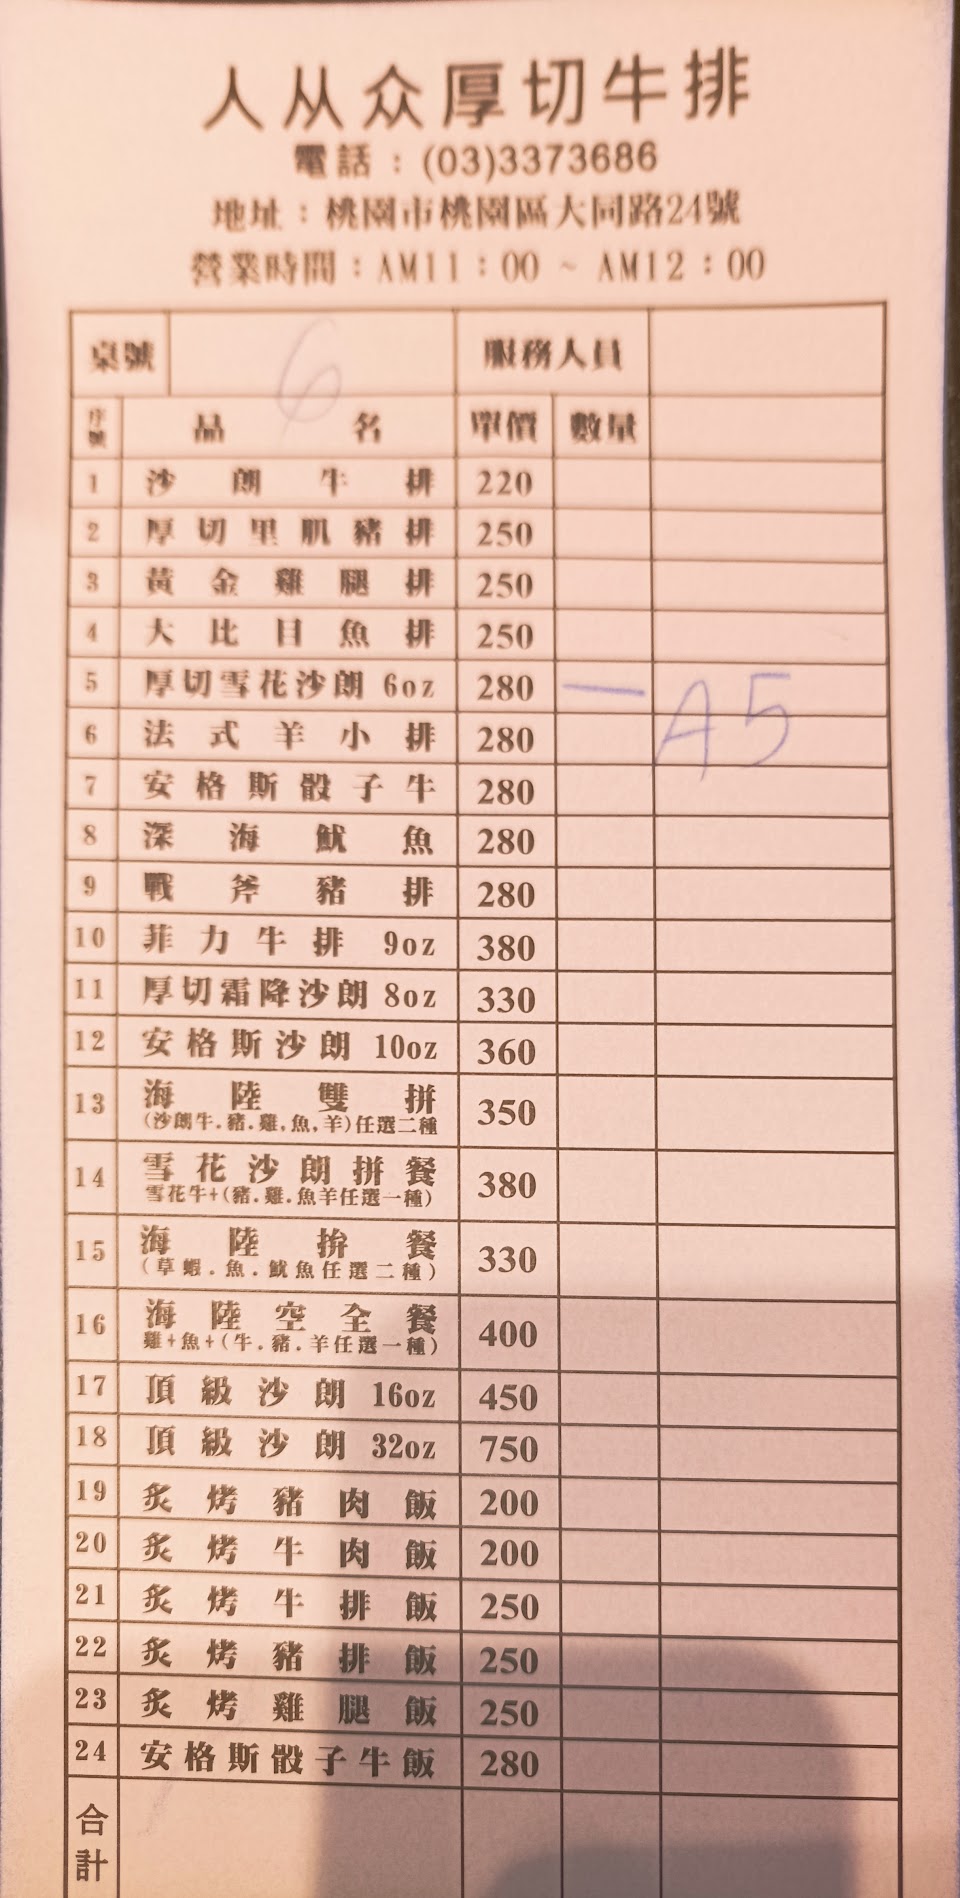 人从众厚切牛排
電話：(03)3373686
地址：桃園市桃園區大同路24號
營業時間：AM11：00 ~ AM12：00
桌號 6 服務人員
序號 品名 單價 數量
1 沙朗牛排 220
2 厚切里肌豬排 250
3 黃金雞腿排 250
4 大比目魚排 250
5 厚切雪花沙朗 6oz 280 一 A5
6 法式羊小排 280
7 安格斯骰子牛 280
8 深海魷魚 280
9 戰斧豬排 280
10 菲力牛排 9oz 380
11 厚切霜降沙朗 8oz 330
12 安格斯沙朗 10oz 360
13 海陸雙拼 350
(沙朗牛.豬.雞,魚,羊)任選二種
14 雪花沙朗拼餐 380
雪花牛+(豬.雞.魚羊任選一種)
15 海陸拚餐 330
(草蝦.魚.魷魚任選二種)
16 海陸空全餐 400
雞+魚+(牛.豬.羊任選一種)
17 頂級沙朗 16oz 450
18 頂級沙朗 32oz 750
19 炙烤豬肉飯 200
20 炙烤牛肉飯 200
21 炙烤牛排飯 250
22 炙烤豬排飯 250
23 炙烤雞腿飯 250
24 安格斯骰子牛飯 280
合計